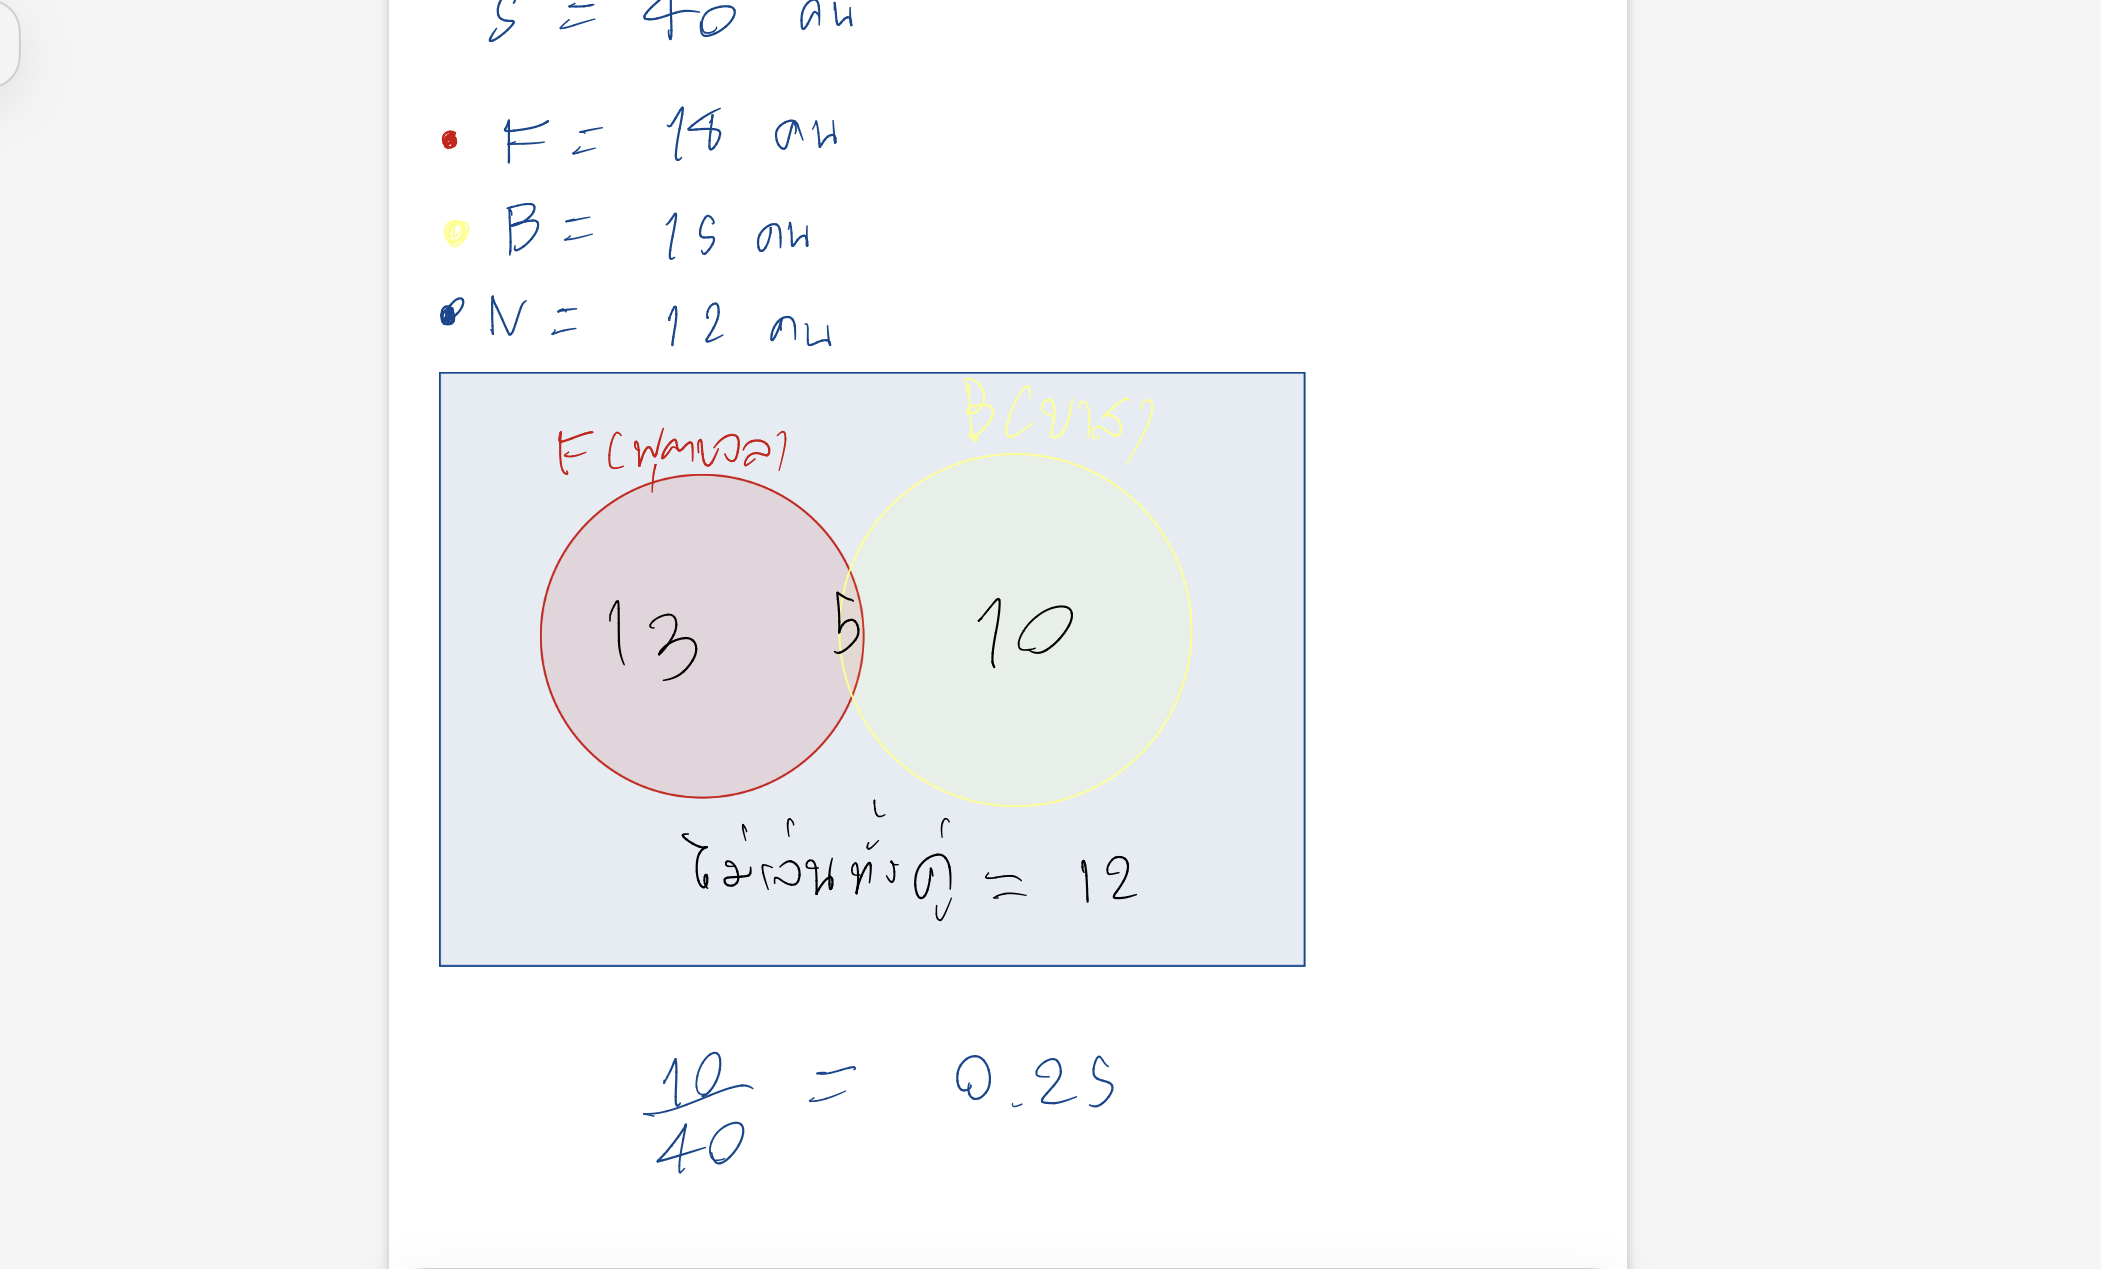 S = 40 คน
F = 18 คน
B = 15 คน
N = 12 คน
B(บาส)
F(ฟุตบอล)
13 5 10
ไม่เล่นทั้งคู่ = 12
10/40 = 0.25